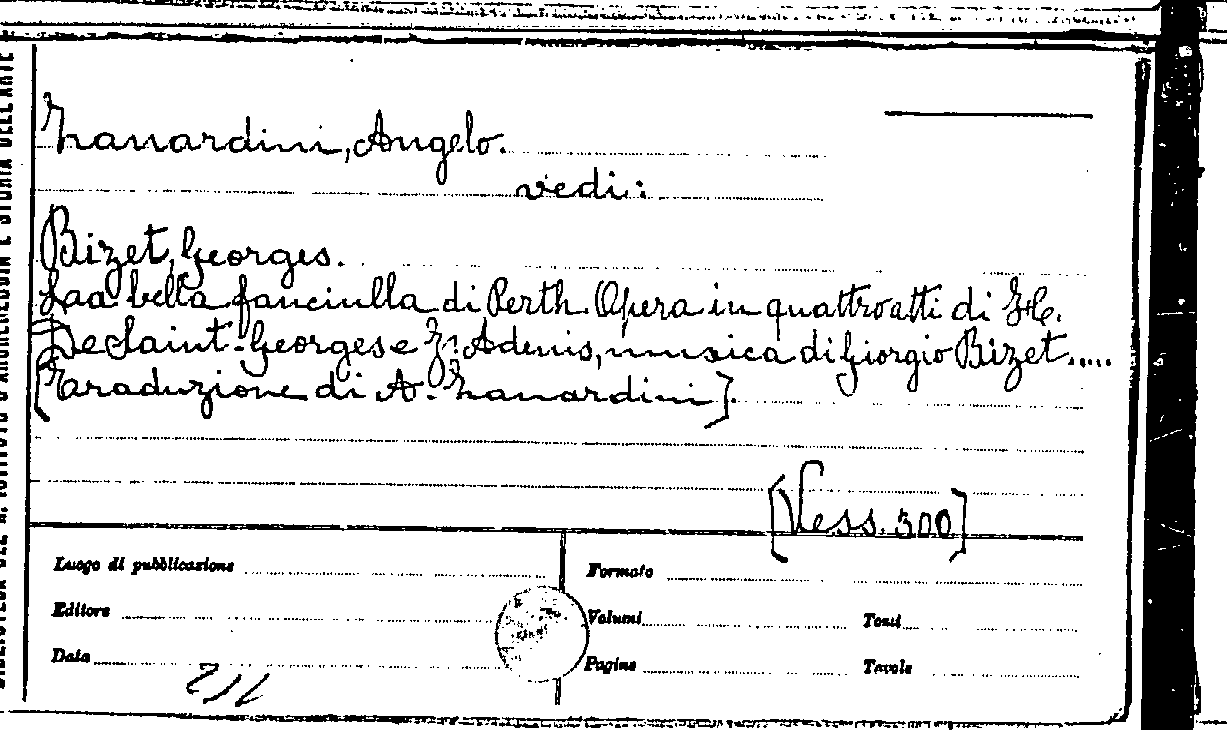 BIBLIOTECA DEL R. ISTITUTO D'ARCHEOLOGIA E STORIA DELL'ARTE
Zanardini, Angelo.
vedi:
Bizet, Georges.
Laa bella fanciulla di Perth. Opera in quattro atti di H.
De Saint-Georges e J. Adenis, musica di Giorgio Bizet.....
[Traduzione di A. Zanardini].
[Vess. 300]
Luogo di pubblicazione
Formato
Editore
Volumi
Tomi
Data
Pagine
Tavole